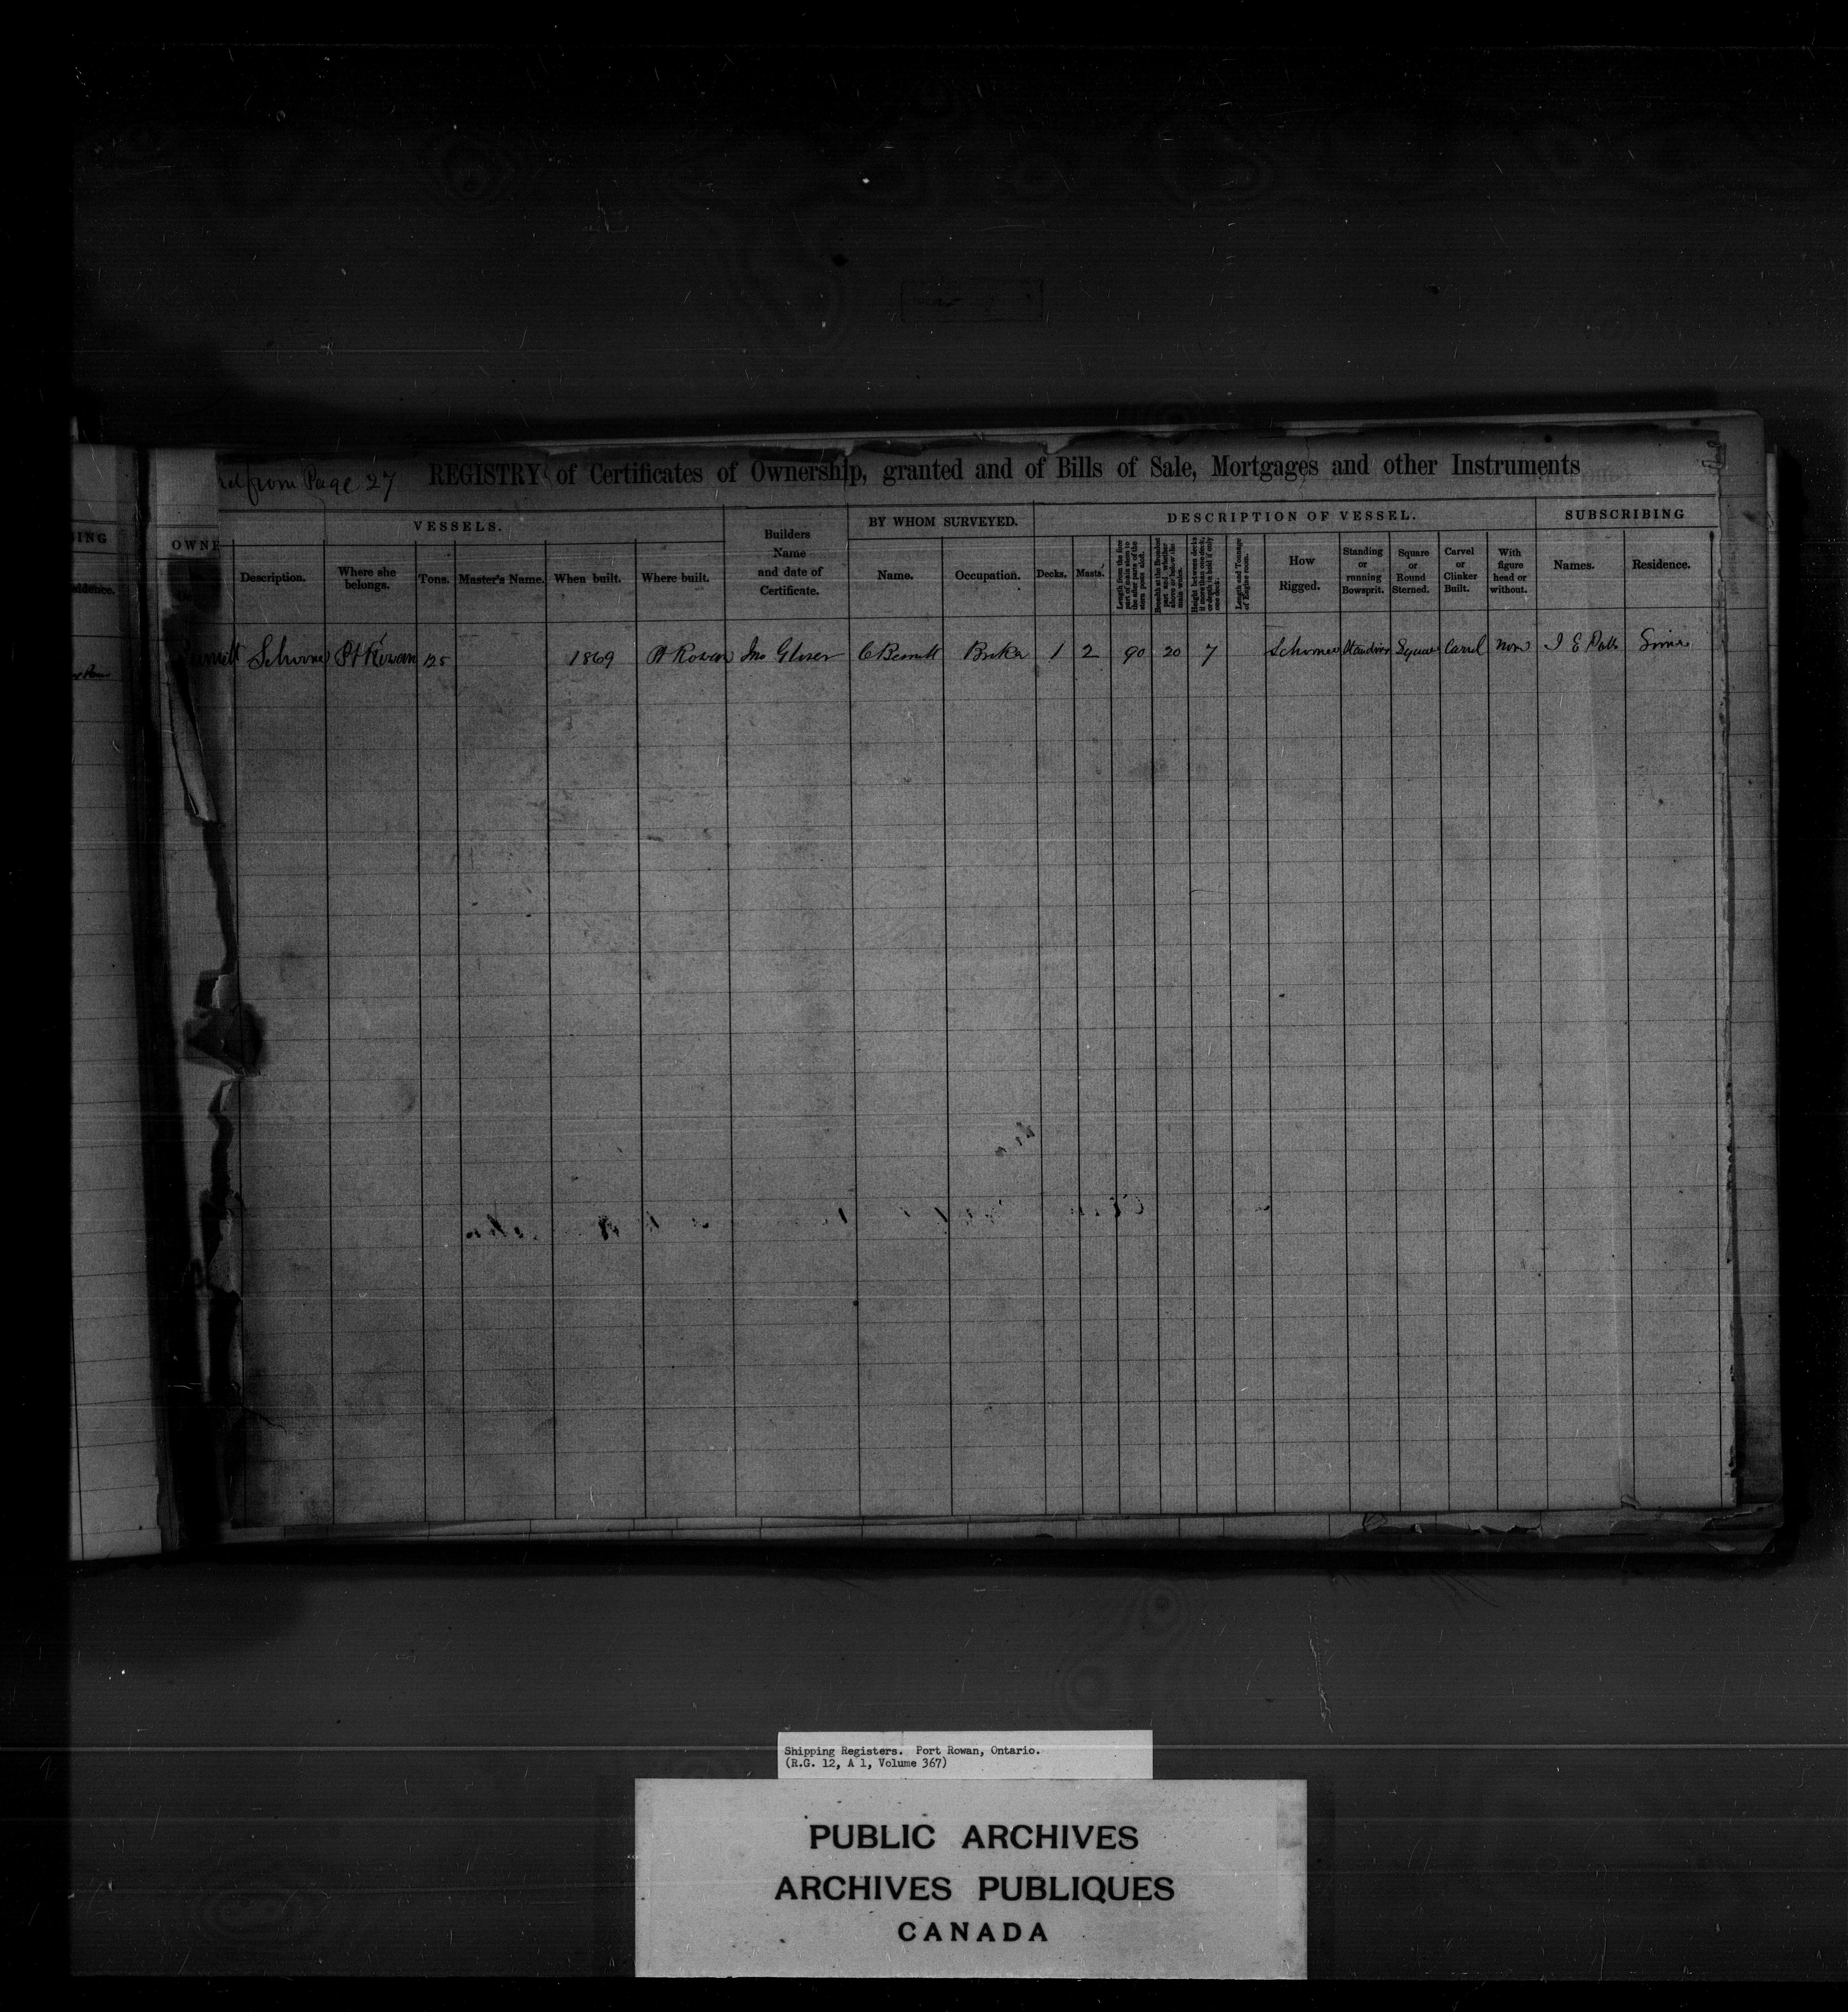 from Page 27 REGISTRY of Certificates of Ownership, granted and of Bills of Sale, Mortgages and other Instruments
ING
OWNE
VESSELS.
Builders Name and date of Certificate.
BY WHOM SURVEYED.
DESCRIPTION OF VESSEL.
SUBSCRIBING
Residence.
Description.
Where she belongs.
Tons.
Master's Name.
When built.
Where built.
Name.
Occupation.
Decks.
Masts.
Length from the fore part of main stem to the after part of the stern post aloft.
Breadth at the Broadest part and whether above or below the main wales.
Height between decks if more than one deck, or depth in hold if only one deck.
Length and Tonnage of Engine room.
How Rigged.
Standing or running Bowsprit.
Square or Round Sterned.
Carvel or Clinker Built.
With figure head or without.
Names.
Residence.
Schooner Pt Rowan 125 1869 Pt Rowan Jno Glover C Bennett 1 2 90 20 7 Schooner Standing Square Carvel None
Shipping Registers. Port Rowan, Ontario.
(R.G. 12, A 1, Volume 367)
PUBLIC ARCHIVES
ARCHIVES PUBLIQUES
CANADA